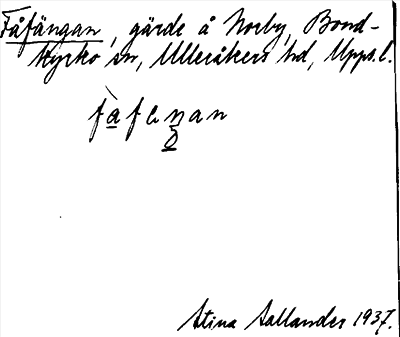 Fåfängan, gärde å Norby, Bond-
kyrko sn, Ulleråkers hd, Upps. l.
Stina Sallander 1937.